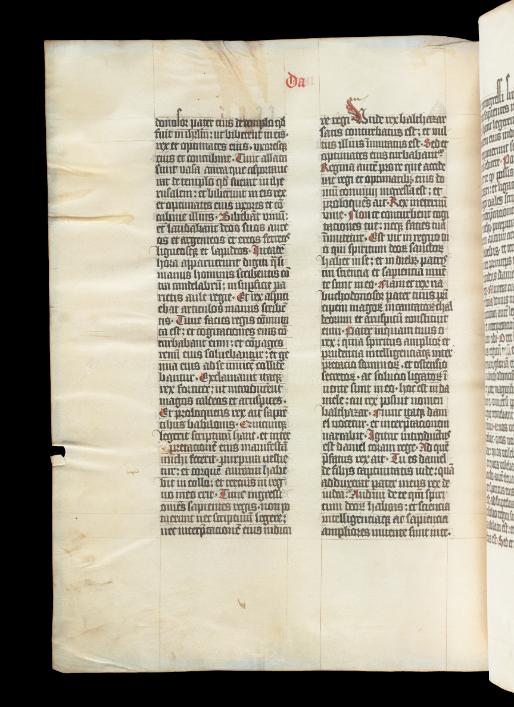 Da
donosor pater eius de templo qd
fuit in ihrlm: ut biberent in eis
rex et optimates eius, uxoresq;
eius et concubine. Tunc allata
sunt vasa aurea que asportave
rat de templo qd fuerat in ihe
rusalem: et biberunt in eis rex
et optimates eius uxores et co
cubine illius. Bibebant vinu:
et laudabant deos suos aure
os et argenteos et ereos ferreos
ligneosq; et lapideos. In eade
hora apparuerunt digiti qsi
manus hominis scribentis co
tra candelabru: in superficie pa
rietis aule regie. Et rex aspici
ebat articulos manus scriben
tis. Tunc facies regis comuta
ta est: et cogitationes eius co
turbabant eum: et copages
renu eius solvebantur: et ge
nua eius ad se invice collide
bantur. Exclamavit itaq;
rex fortiter: ut introducerent
magos caldeos et aruspices.
Et proloquens rex ait sapien
tibus babilonis. Quicunq;
legerit scriptura hanc et inter
pretatione eius manifesta
michi fecerit: purpura vestie
tur: et torque aurium habe
bit in collo: et tercius in reg
no meo erit. Tunc ingressi
omnes sapientes regis non po
tuerunt nec scriptura legere:
nec interpretatione eius indica
re regi. Unde rex balthazar
satis conturbatus est: et vul
tus illius imutatus est. Sed et
optimates eius turbabant.
Regina aute pro re que accide
rat regi et optimatib; eius do
mu convivij ingressa est: et
proloquens ait. Rex ineternu
vive. Non te conturbent cogi
tationes tue: neq; facies tua
imutetur. Est vir in regno tu
o qui spiritum deor sanctor
habet in se: et in dieb; patris
tui scientia et sapientia inve
te sunt in eo. Nam et rex na
buchodonosor pater tuus prin
cipem magor incantator chal
deorum et aruspicu constituit
eum. Pater inquam tuus o
rex: quia spiritus amplior et
prudentia intelligentiaq; inter
pretatio sompnior et ostensio
secretor ac solutio ligator in
vente sunt in eo. hoc est in da
niele: cui rex posuit nomen
balthazar. Nunc itaq; dani
el vocetur: et interpretationem
narrabit. Igitur introductus
est daniel coram rege. Ad que
prefatus rex ait. Tu es daniel
de filijs captivitatis iude: qua
adduxerat pater meus rex de
iudea: Audivi de te qm spiri
tum deor habeas: et scientia
intelligentiaq; ac sapientia
ampliores invente sunt in te.